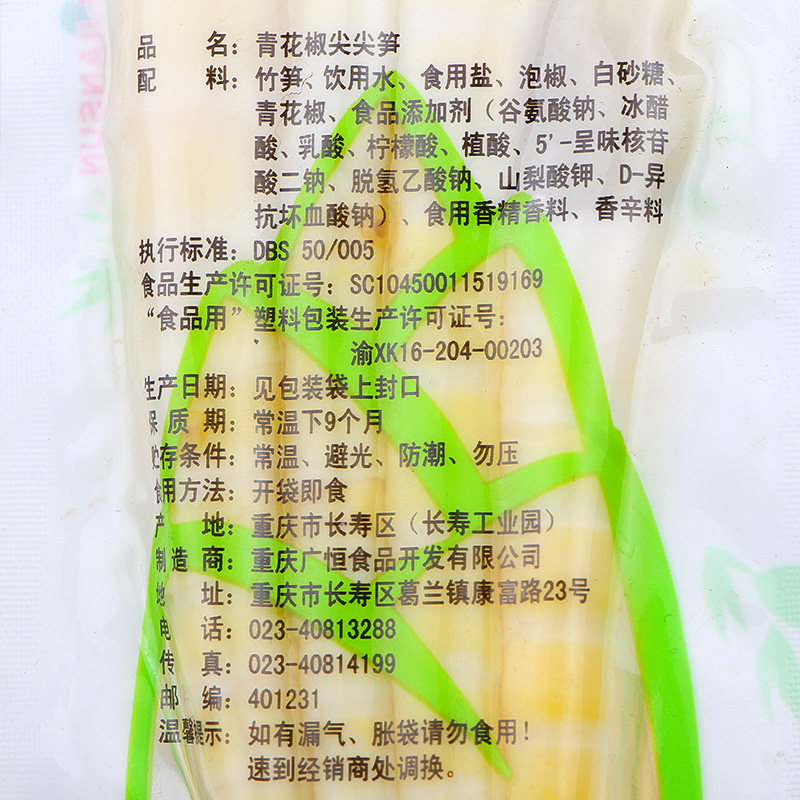 品 名：青花椒尖尖笋
配 料：竹笋、饮用水、食用盐、泡椒、白砂糖、
青花椒、食品添加剂（谷氨酸钠、冰醋
酸、乳酸、柠檬酸、植酸、5'-呈味核苷
酸二钠、脱氢乙酸钠、山梨酸钾、D-异
抗坏血酸钠）、食用香精香料、香辛料
执行标准：DBS 50/005
食品生产许可证号：SC10450011519169
“食品用”塑料包装生产许可证号：
渝XK16-204-00203
生产日期：见包装袋上封口
保 质 期：常温下9个月
贮存条件：常温、避光、防潮、勿压
食用方法：开袋即食
产 地：重庆市长寿区（长寿工业园）
制 造 商：重庆广恒食品开发有限公司
地 址：重庆市长寿区葛兰镇康富路23号
电 话：023-40813288
传 真：023-40814199
邮 编：401231
温馨提示：如有漏气、胀袋请勿食用！
速到经销商处调换。